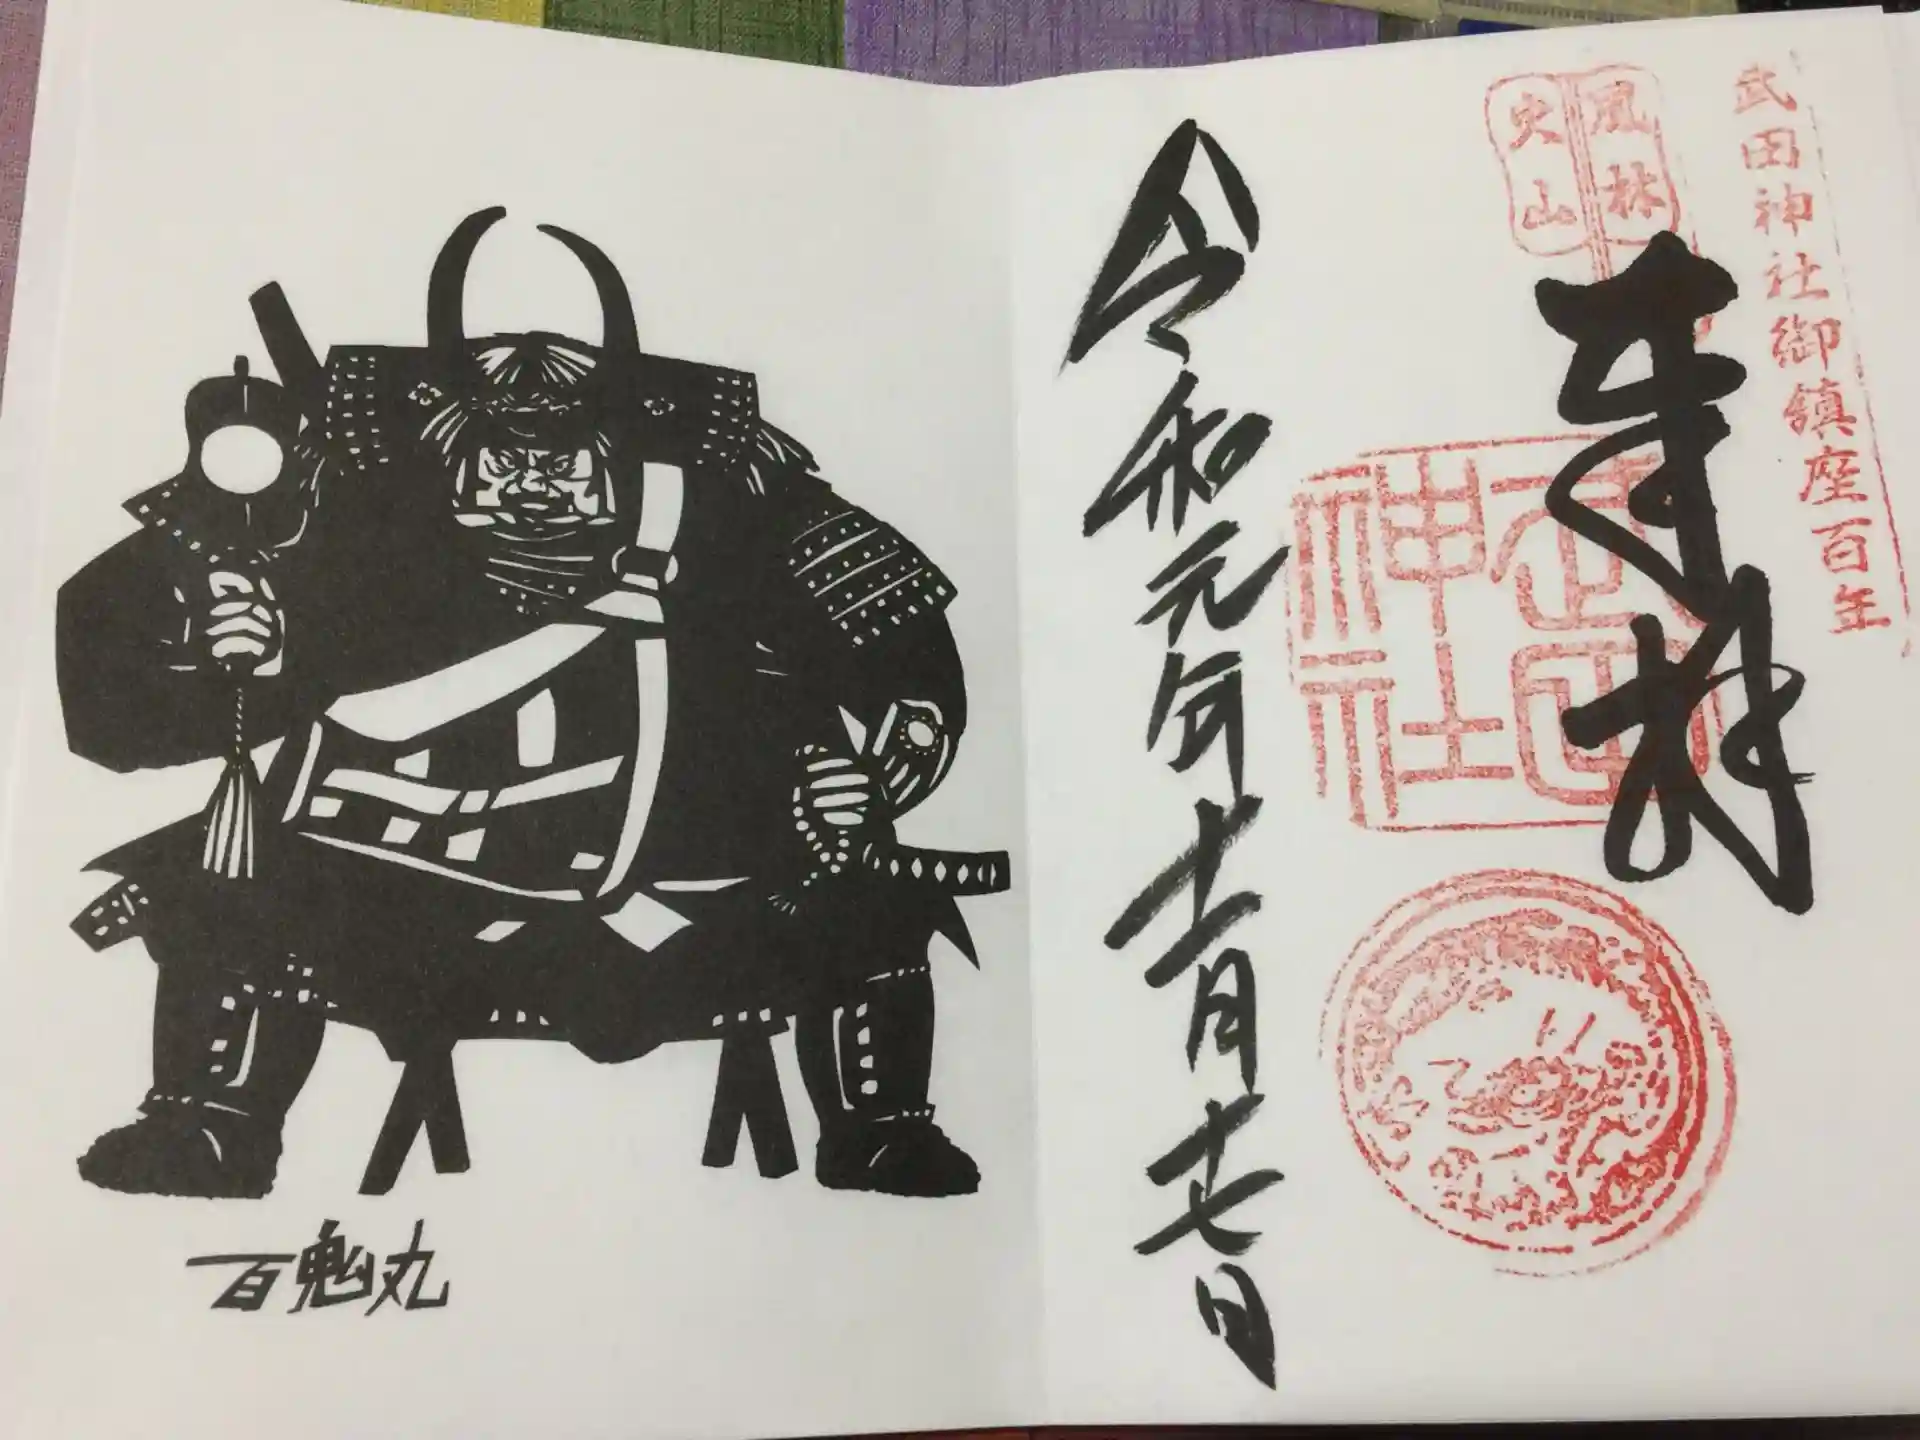 武田神社御鎮座百年
風林
火山
奉拝
武田
神社
令和元年十一月十七日
百鬼丸